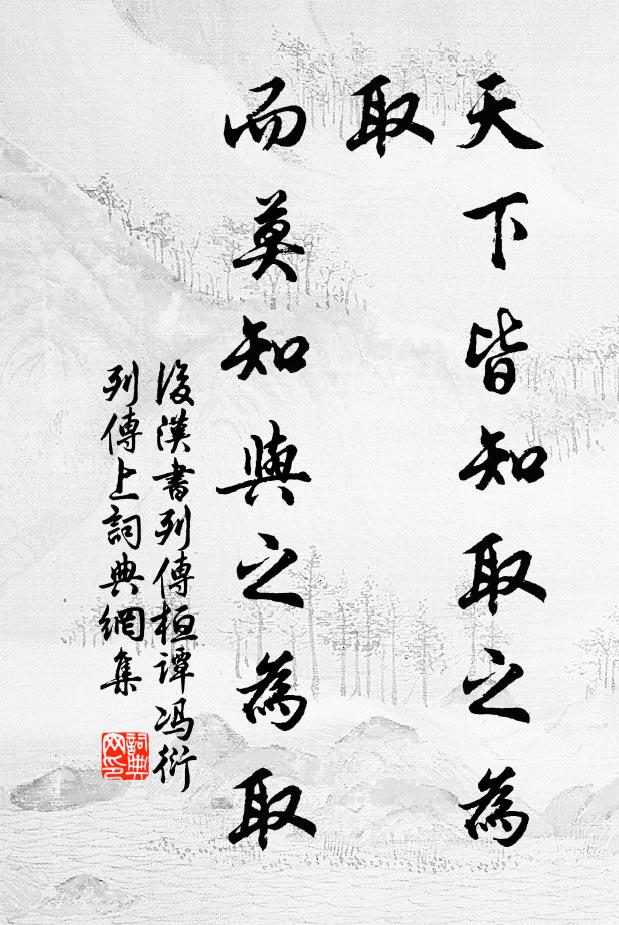 天下皆知取之為
取
而莫知與之為取
後漢書列傳桓譚馮衍
列傳上詞典網集
詞典
网印